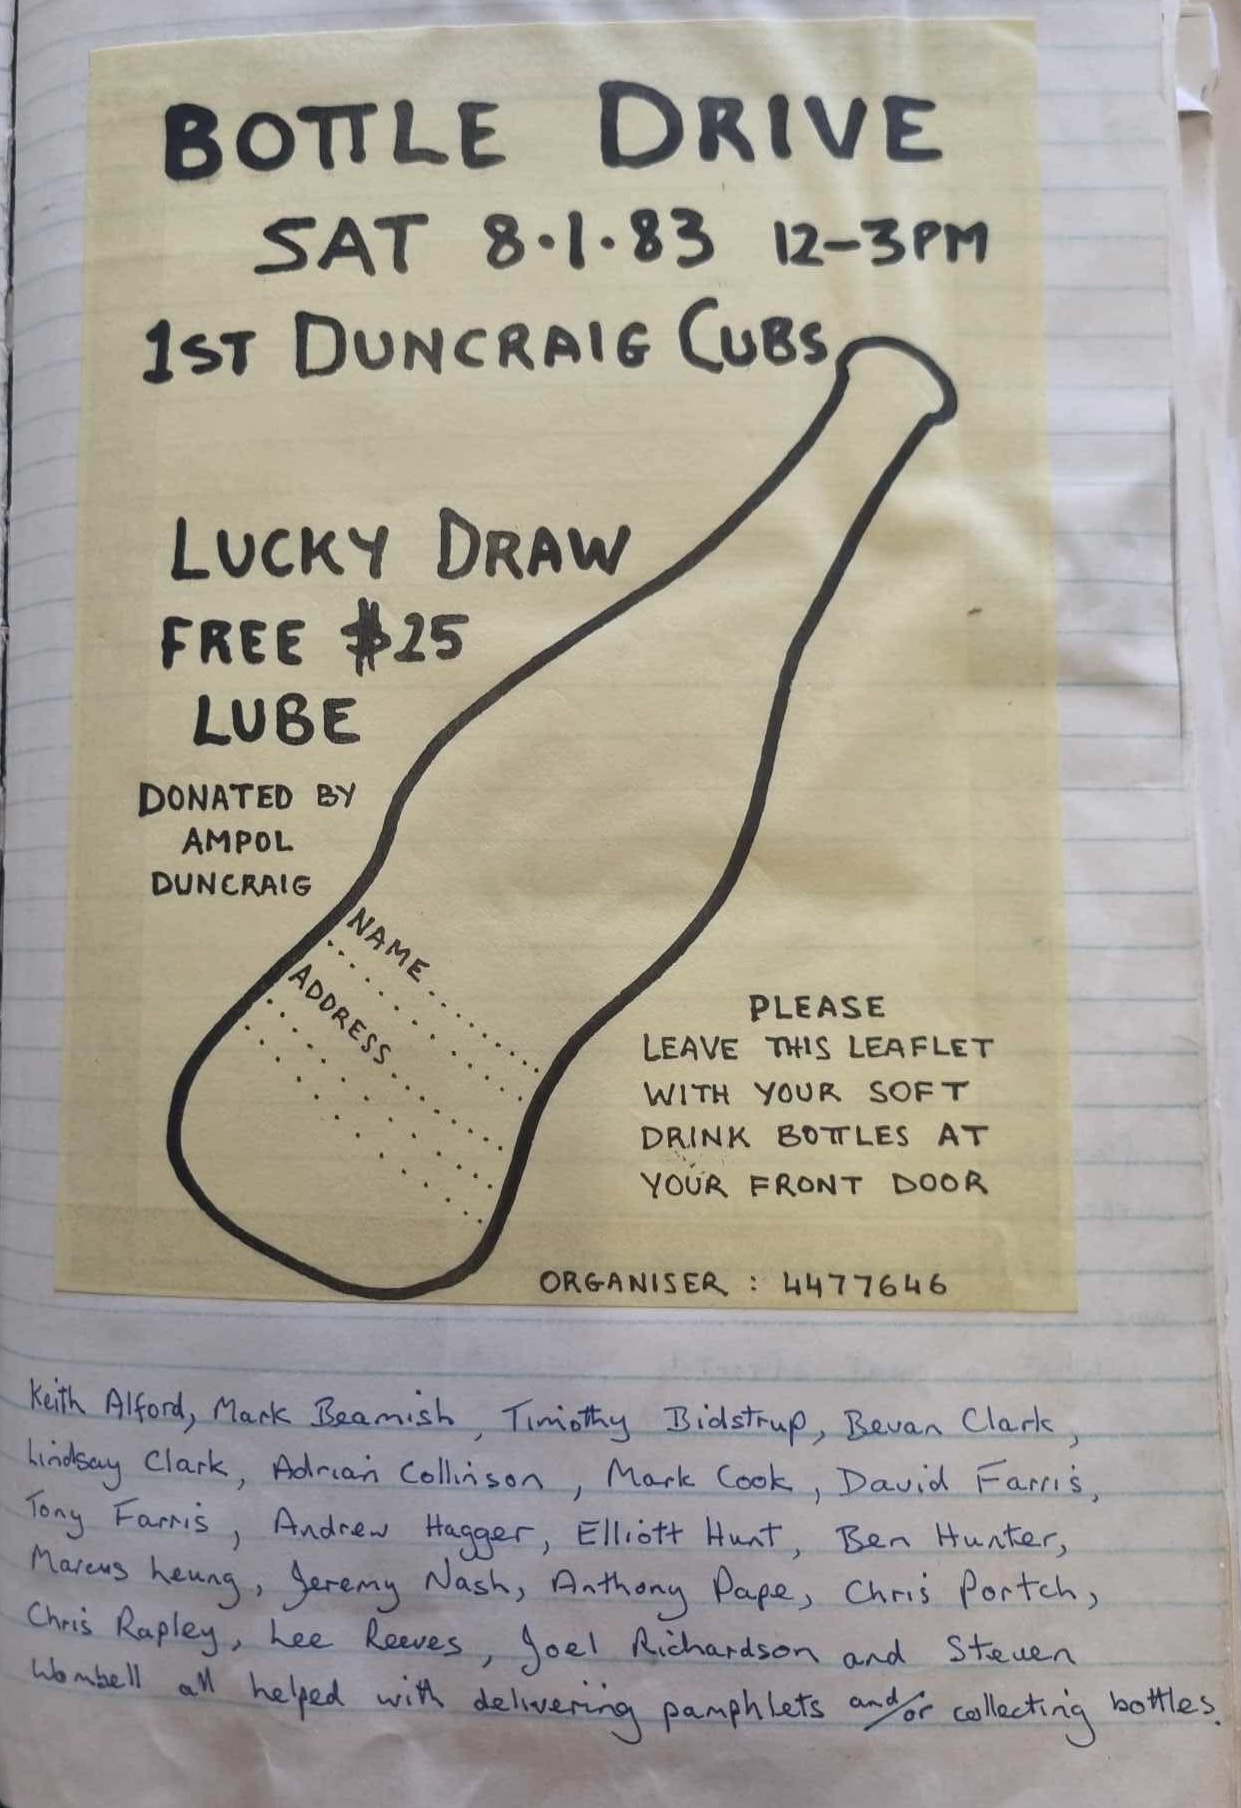 BOTTLE DRIVE
SAT 8.1.83 12-3PM
1ST DUNCRAIG CUBS
LUCKY DRAW
FREE $25
LUBE
DONATED BY
AMPOL
DUNCRAIG
NAME
ADDRESS
PLEASE
LEAVE THIS LEAFLET
WITH YOUR SOFT
DRINK BOTTLES AT
YOUR FRONT DOOR
ORGANISER : 4477646
Keith Alford, Mark Beamish, Timothy Bidstrup, Bevan Clark,
Lindsay Clark, Adrian Collinson, Mark Cook, David Farris,
Tony Farris, Andrew Hagger, Elliott Hunt, Ben Hunter,
Marcus Leung, Jeremy Nash, Anthony Pape, Chris Portch,
Chris Rapley, Lee Reeves, Joel Richardson and Steven
Wombell all helped with delivering pamphlets and/or collecting bottles.